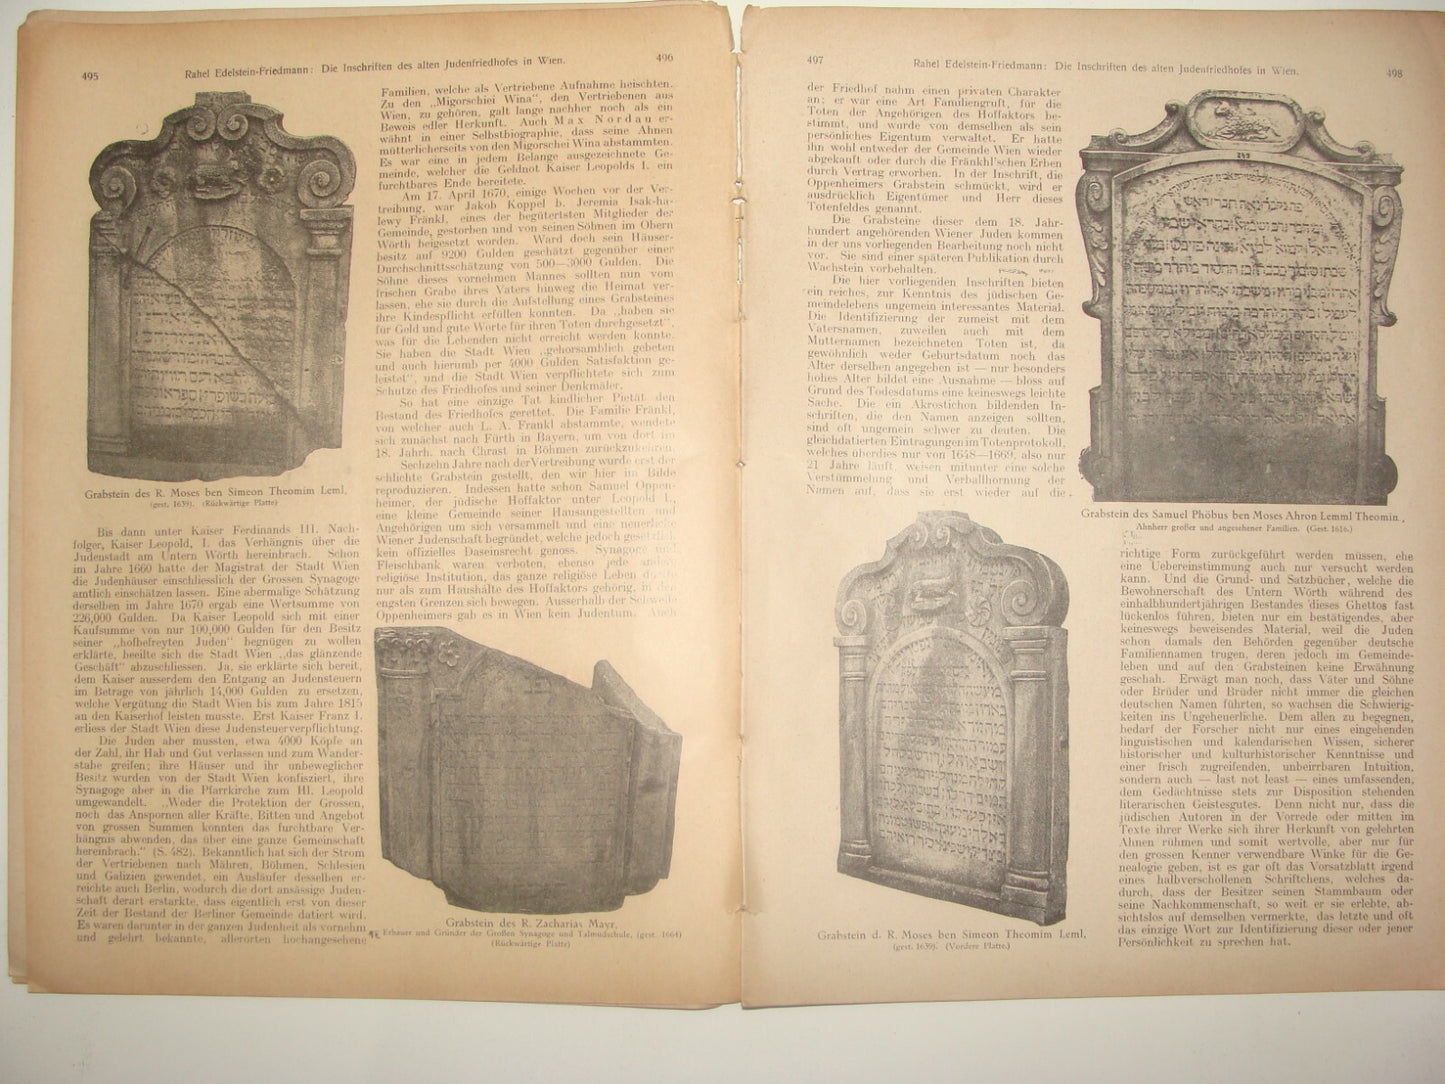 495
Rahel Edelstein-Friedmann: Die Inschriften des alten Judenfriedhofes in Wien.
496
Grabstein des R. Moses ben Simeon Theomim Leml,
(gest. 1639). (Rückwärtige Platte)
Bis dann unter Kaiser Ferdinands III. Nach-
folger, Kaiser Leopold, I. das Verhängnis über die
Judenstadt am Untern Wörth hereinbrach. Schon
im Jahre 1660 hatte der Magistrat der Stadt Wien
die Judenhäuser einschliesslich der Grossen Synagoge
amtlich einschätzen lassen. Eine abermalige Schätzung
derselben im Jahre 1670 ergab eine Wertsumme von
226,000 Gulden. Da Kaiser Leopold sich mit einer
Kaufsumme von nur 100,000 Gulden für den Besitz
seiner „hofbefreyten Juden“ begnügen zu wollen
erklärte, beeilte sich die Stadt Wien „das glänzende
Geschäft“ abzuschliessen. Ja, sie erklärte sich bereit,
dem Kaiser ausserdem den Entgang an Judensteuern
im Betrage von jährlich 14,000 Gulden zu ersetzen,
welche Vergütung die Stadt Wien bis zum Jahre 1815
an den Kaiserhof leisten musste. Erst Kaiser Franz I.
erliess der Stadt Wien diese Judensteuerverpflichtung.
Die Juden aber mussten, etwa 4000 Köpfe an
der Zahl, ihr Hab und Gut verlassen und zum Wander-
stabe greifen; ihre Häuser und ihr unbeweglicher
Besitz wurden von der Stadt Wien konfisziert, ihre
Synagoge aber in die Pfarrkirche zum Hl. Leopold
umgewandelt. „Weder die Protektion der Grossen,
noch das Anspornen aller Kräfte, Bitten und Angebot
von grossen Summen konnten das furchtbare Ver-
hängnis abwenden, das über eine ganze Gemeinschaft
hereinbrach.“ (S. 482). Bekanntlich hat sich der Strom
der Vertriebenen nach Mähren, Böhmen, Schlesien
und Galizien gewendet, ein Ausläufer desselben er-
reichte auch Berlin, wodurch die dort ansässige Juden-
schaft derart erstarkte, dass eigentlich erst von dieser
Zeit der Bestand der Berliner Gemeinde datiert wird.
Es waren darunter in der ganzen Judenheit als vornehm
und gelehrt bekannte, allerorten hochangesehene
Familien, welche als Vertriebene Aufnahme heischten.
Zu den „Migorschiei Wina“, den Vertriebenen aus
Wien, zu gehören, galt lange nachher noch als ein
Beweis edler Herkunft. Auch Max Nordau er-
wähnt in einer Selbstbiographie, dass seine Ahnen
mütterlicherseits von den Migorschei Wina abstammten.
Es war eine in jedem Belange ausgezeichnete Ge-
meinde, welcher die Geldnot Kaiser Leopolds I. ein
furchtbares Ende bereitete.
Am 17. April 1670, einige Wochen vor der Ver-
treibung, war Jakob Koppel b. Jeremia Isak-ha-
lewy Fränkl, eines der begütertsten Mitglieder der
Gemeinde, gestorben und von seinen Söhnen im Obern
Wörth beigesetzt worden. Ward doch sein Häuser-
besitz auf 9200 Gulden geschätzt gegenüber einer
Durchschnittsschätzung von 500—3000 Gulden. Die
Söhne dieses vornehmen Mannes sollten nun vom
frischen Grabe ihres Vaters hinweg die Heimat ver-
lassen, ehe sie durch die Aufstellung eines Grabsteines
ihre Kindespflicht erfüllen konnten. Da „haben sie
für Gold und gute Worte für ihren Toten durchgesetzt“,
was für die Lebenden nicht erreicht werden konnte.
Sie haben die Stadt Wien „gehorsamblich gebeten
und auch hierumb per 4000 Gulden Satisfaktion ge-
leistet“, und die Stadt Wien verpflichtete sich zum
Schutze des Friedhofes und seiner Denkmäler.
So hat eine einzige Tat kindlicher Pietät den
Bestand des Friedhofes gerettet. Die Familie Fränkl,
von welcher auch L. A. Frankl abstammte, wendete
sich zunächst nach Fürth in Bayern, um von dort im
18. Jahrh. nach Chrast in Böhmen zurückzukehren.
Sechzehn Jahre nach der Vertreibung wurde erst der
schlichte Grabstein gestellt, den wir hier im Bilde
reproduzieren. Indessen hatte schon Samuel Oppen-
heimer, der jüdische Hoffaktor unter Leopold I.,
eine kleine Gemeinde seiner Hausangestellten und
Angehörigen um sich versammelt und eine neuerliche
Wiener Judenschaft begründet, welche jedoch gesetzlich
kein offizielles Daseinsrecht genoss. Synagoge und
Fleischbank waren verboten, ebenso jede andere
religiöse Institution, das ganze religiöse Leben durfte
nur als zum Haushälte des Hoffaktors gehörig, in den
engsten Grenzen sich bewegen. Ausserhalb der Schwelle
Oppenheimers gab es in Wien kein Judentum. Auch
Grabstein des R. Zacharias Mayr,
Erbauer und Gründer der Großen Synagoge und Talmudschule, (gest. 1664)
(Rückwärtige Platte)
497
Rahel Edelstein-Friedmann: Die Inschriften des alten Judenfriedhofes in Wien.
498
der Friedhof nahm einen privaten Charakter
an; er war eine Art Familiengruft, für die
Toten der Angehörigen des Hoffaktors be-
stimmt, und wurde von demselben als sein
persönliches Eigentum verwaltet. Er hatte
ihn wohl entweder der Gemeinde Wien wieder
abgekauft oder durch die Fränkhl'schen Erben
durch Vertrag erworben. In der Inschrift, die
Oppenheimers Grabstein schmückt, wird er
ausdrücklich Eigentümer und Herr dieses
Totenfeldes genannt.
Die Grabsteine dieser dem 18. Jahr-
hundert angehörenden Wiener Juden kommen
in der uns vorliegenden Bearbeitung noch nicht
vor. Sie sind einer späteren Publikation durch
Wachstein vorbehalten.
Die hier vorliegenden Inschriften bieten
ein reiches, zur Kenntnis des jüdischen Ge-
meindelebens ungemein interessantes Material.
Die Identifizierung der zumeist mit dem
Vatersnamen, zuweilen auch mit dem
Mutternamen bezeichneten Toten ist, da
gewöhnlich weder Geburtsdatum noch das
Alter derselben angegeben ist — nur besonders
hohes Alter bildet eine Ausnahme — bloss auf
Grund des Todesdatums eine keineswegs leichte
Sache. Die ein Akrostichon bildenden In-
schriften, die den Namen anzeigen sollten,
sind oft ungemein schwer zu deuten. Die
gleichdatierten Eintragungen im Totenprotokoll,
welches überdies nur von 1648—1669, also nur
21 Jahre läuft, weisen mitunter eine solche
Verstümmelung und Verballhornung der
Namen auf, dass sie erst wieder auf die
Grabstein d. R. Moses ben Simeon Theomim Leml,
(gest. 1639). (Vordere Platte.)
Grabstein des Samuel Phöbus ben Moses Ahron Lemml Theomin,
Ahnherr großer und angesehener Familien. (Gest. 1616.)
richtige Form zurückgeführt werden müssen, ehe
eine Uebereinstimmung auch nur versucht werden
kann. Und die Grund- und Satzbücher, welche die
Bewohnerschaft des Untern Wörth während des
einhalbhundertjährigen Bestandes dieses Ghettos fast
lückenlos führen, bieten nur ein bestätigendes, aber
keineswegs beweisendes Material, weil die Juden
schon damals den Behörden gegenüber deutsche
Familiennamen trugen, deren jedoch im Gemeinde-
leben und auf den Grabsteinen keine Erwähnung
geschah. Erwägt man noch, dass Väter und Söhne
oder Brüder und Brüder nicht immer die gleichen
deutschen Namen führten, so wachsen die Schwierig-
keiten ins Ungeheuerliche. Dem allen zu begegnen,
bedarf der Forscher nicht nur eines eingehenden
linguistischen und kalendarischen Wissen, sicherer
historischer und kulturhistorischer Kenntnisse und
einer frisch zugreifenden, unbeirrbaren Intuition,
sondern auch — last not least — eines umfassenden,
dem Gedächtnisse stets zur Disposition stehenden
literarischen Geistesgutes. Denn nicht nur, dass die
jüdischen Autoren in der Vorrede oder mitten im
Texte ihrer Werke sich ihrer Herkunft von gelehrten
Ahnen rühmen und somit wertvolle, aber nur für
den grossen Kenner verwendbare Winke für die Ge-
nealogie geben, ist es gar oft das Vorsatzblatt irgend
eines halbverschollenen Schriftchens, welches da-
durch, dass der Besitzer seinen Stammbaum oder
seine Nachkommenschaft, so weit er sie erlebte, ab-
sichtslos auf demselben vermerkte, das letzte und oft
das einzige Wort zur Identifizierung dieser oder jener
Persönlichkeit zu sprechen hat.